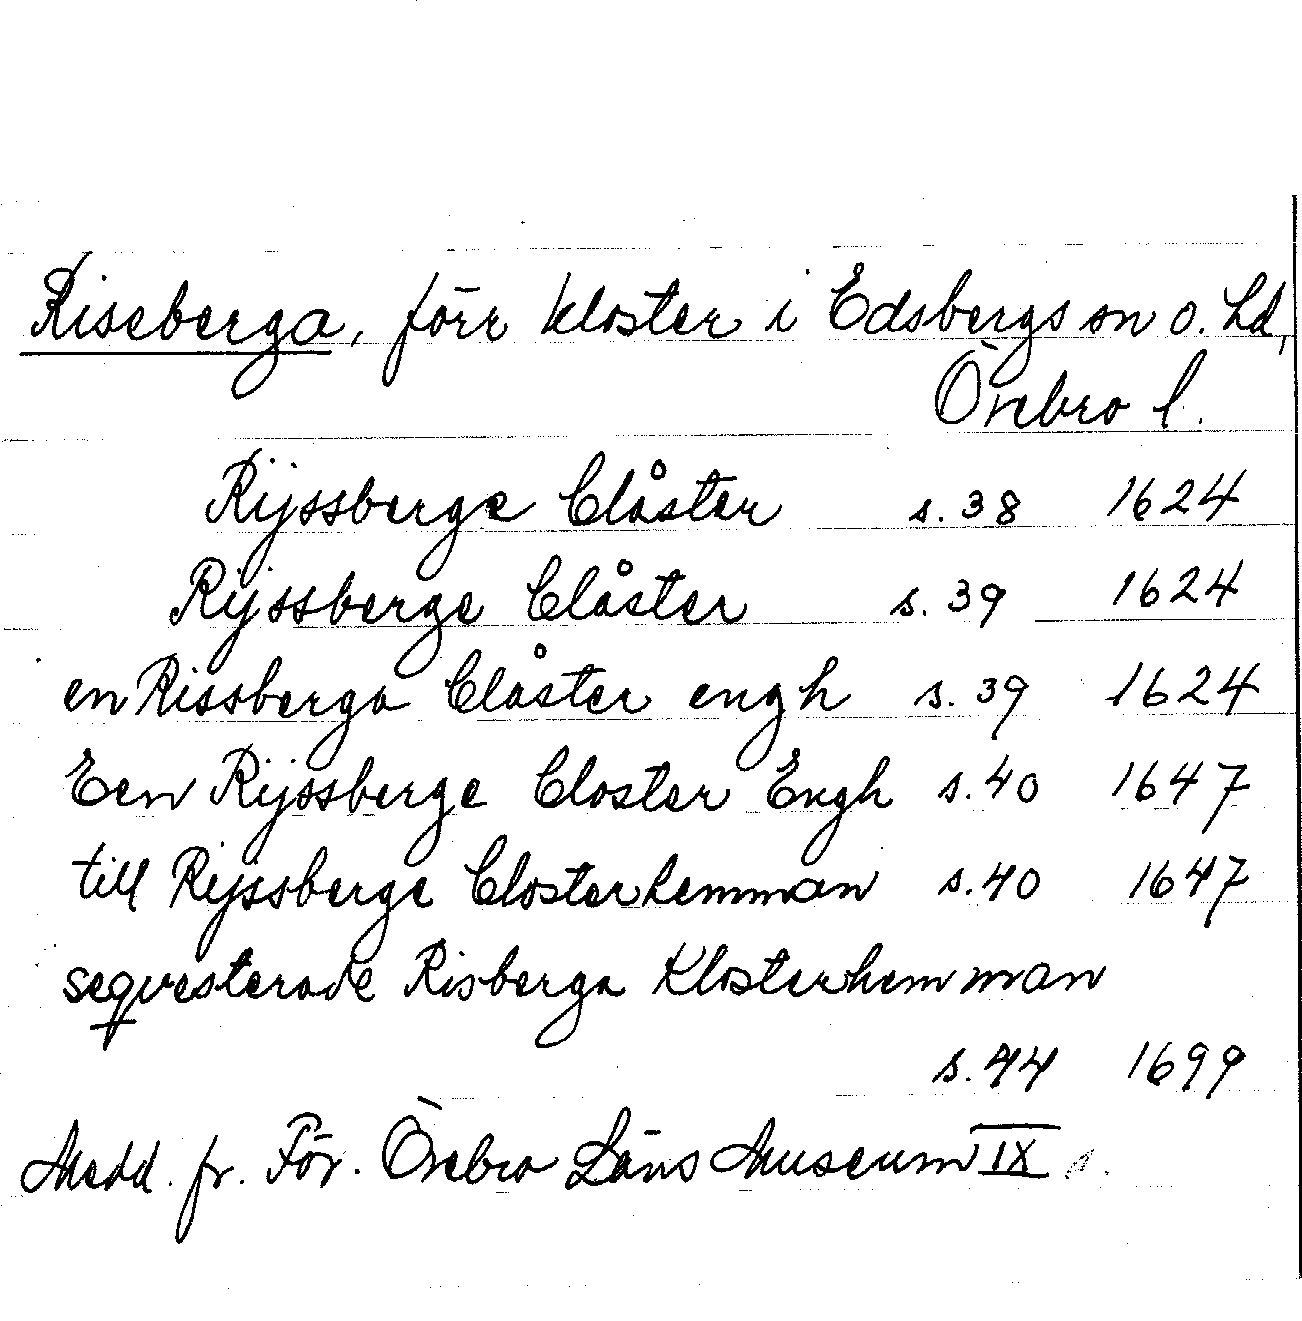 Riseberga, förr kloster i Edsbergs sn o. hd,
Örebro l.
Rijssberge Clåster s. 38 1624
Rijssberge Clåster s. 39 1624
en Rissberga Clåster engh s. 39 1624
Een Rijssberge Closter Engh s. 40 1647
till Rijssberge Closterhemman s. 40 1647
seqvesterade Risberga Klosterhemman
s. 44 1699
Medd. fr. För. Örebro Läns Museum IX